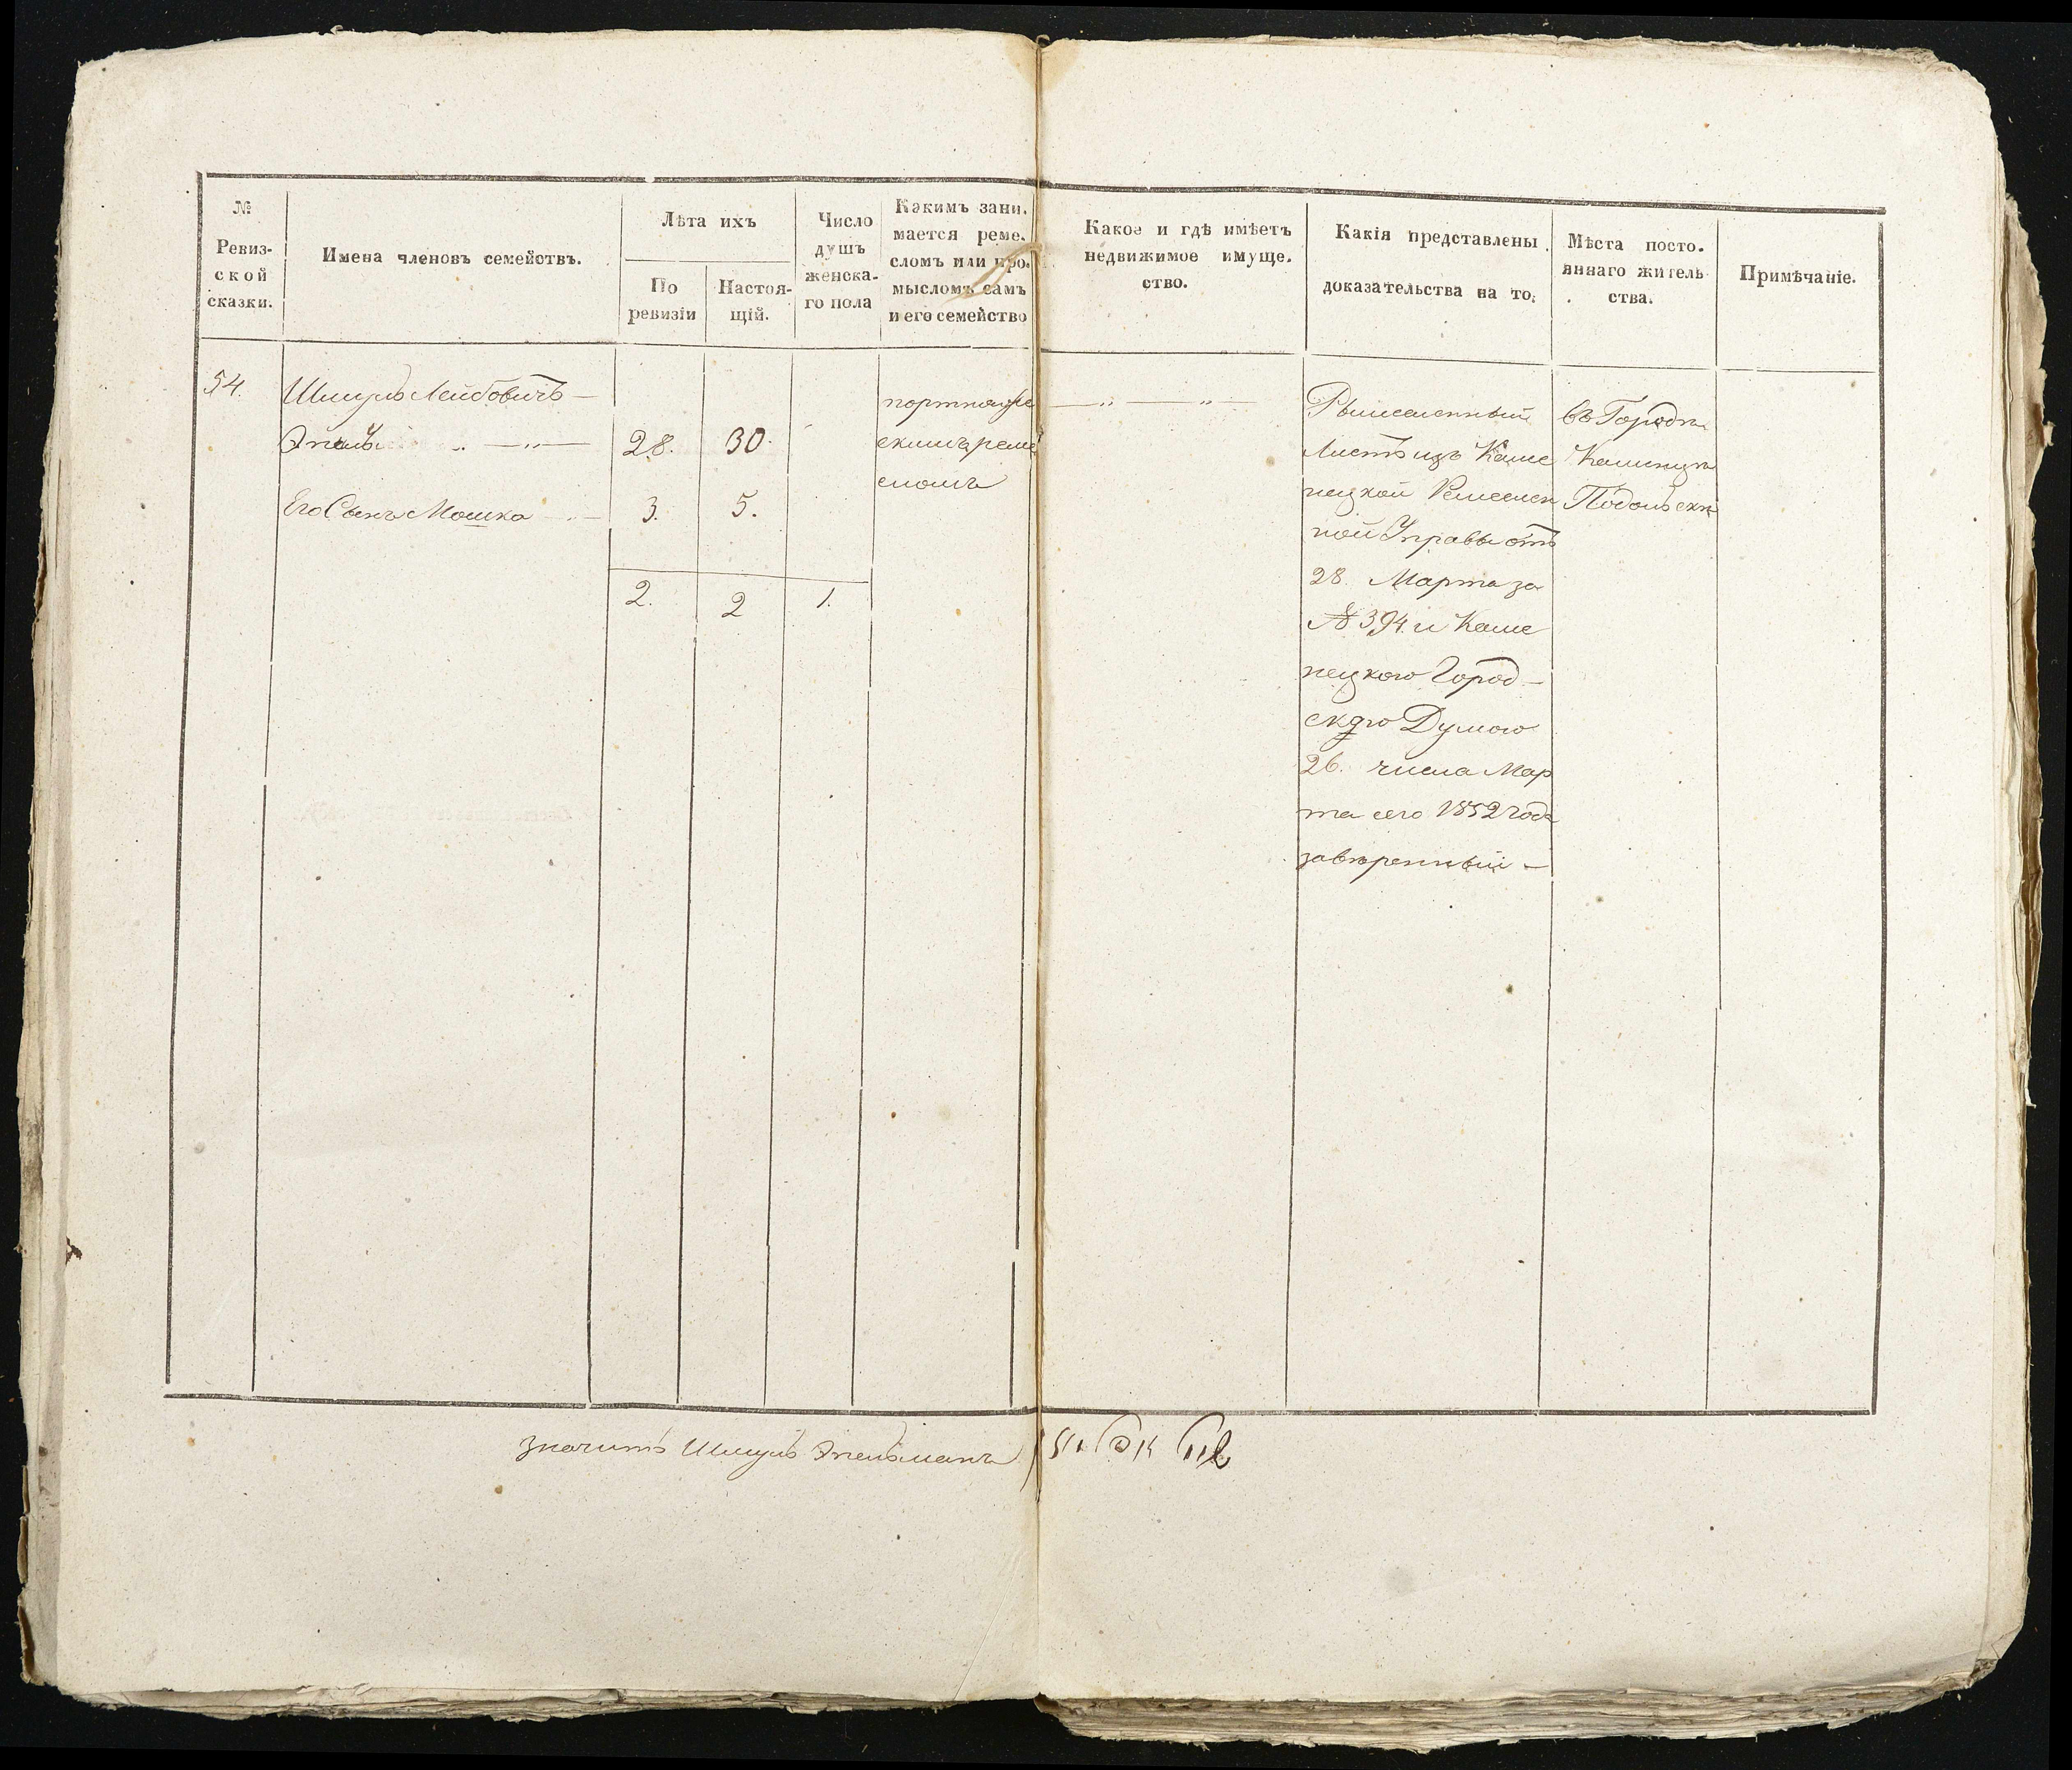 №
Ревиз-
ской
сказки.
Имена членовъ семействъ.
Лѣта ихъ
По
ревизіи
Настоя-
щій.
Число
душъ
женска-
го пола
Какимъ зани-
мается реме-
сломъ или про-
мысломъ самъ
и его семейство
Какое и гдѣ имѣетъ
недвижимое имуще-
ство.
Какія представлены
доказательства на то.
Мѣста посто-
яннаго житель
ства.
Примѣчаніе.
54.
Шмуль Лейбовичъ —
28. 30.
Его Сынъ Мошко 3. 5.
2. 2 1.
портняже
скимъ реме
сломъ
— „ — „ —
Ремесленный
Листъ изъ Каме
нецкой Ремеслен
ной Управы отъ
28. Марта за
№ 394. и Каме
нецкою Город-
скою Думою
26. числа Мар
та сего 1852 года
завѣренный —
въ Городѣ
Каменцѣ
Подольскѣ
значитъ Шмуль Эпельманъ